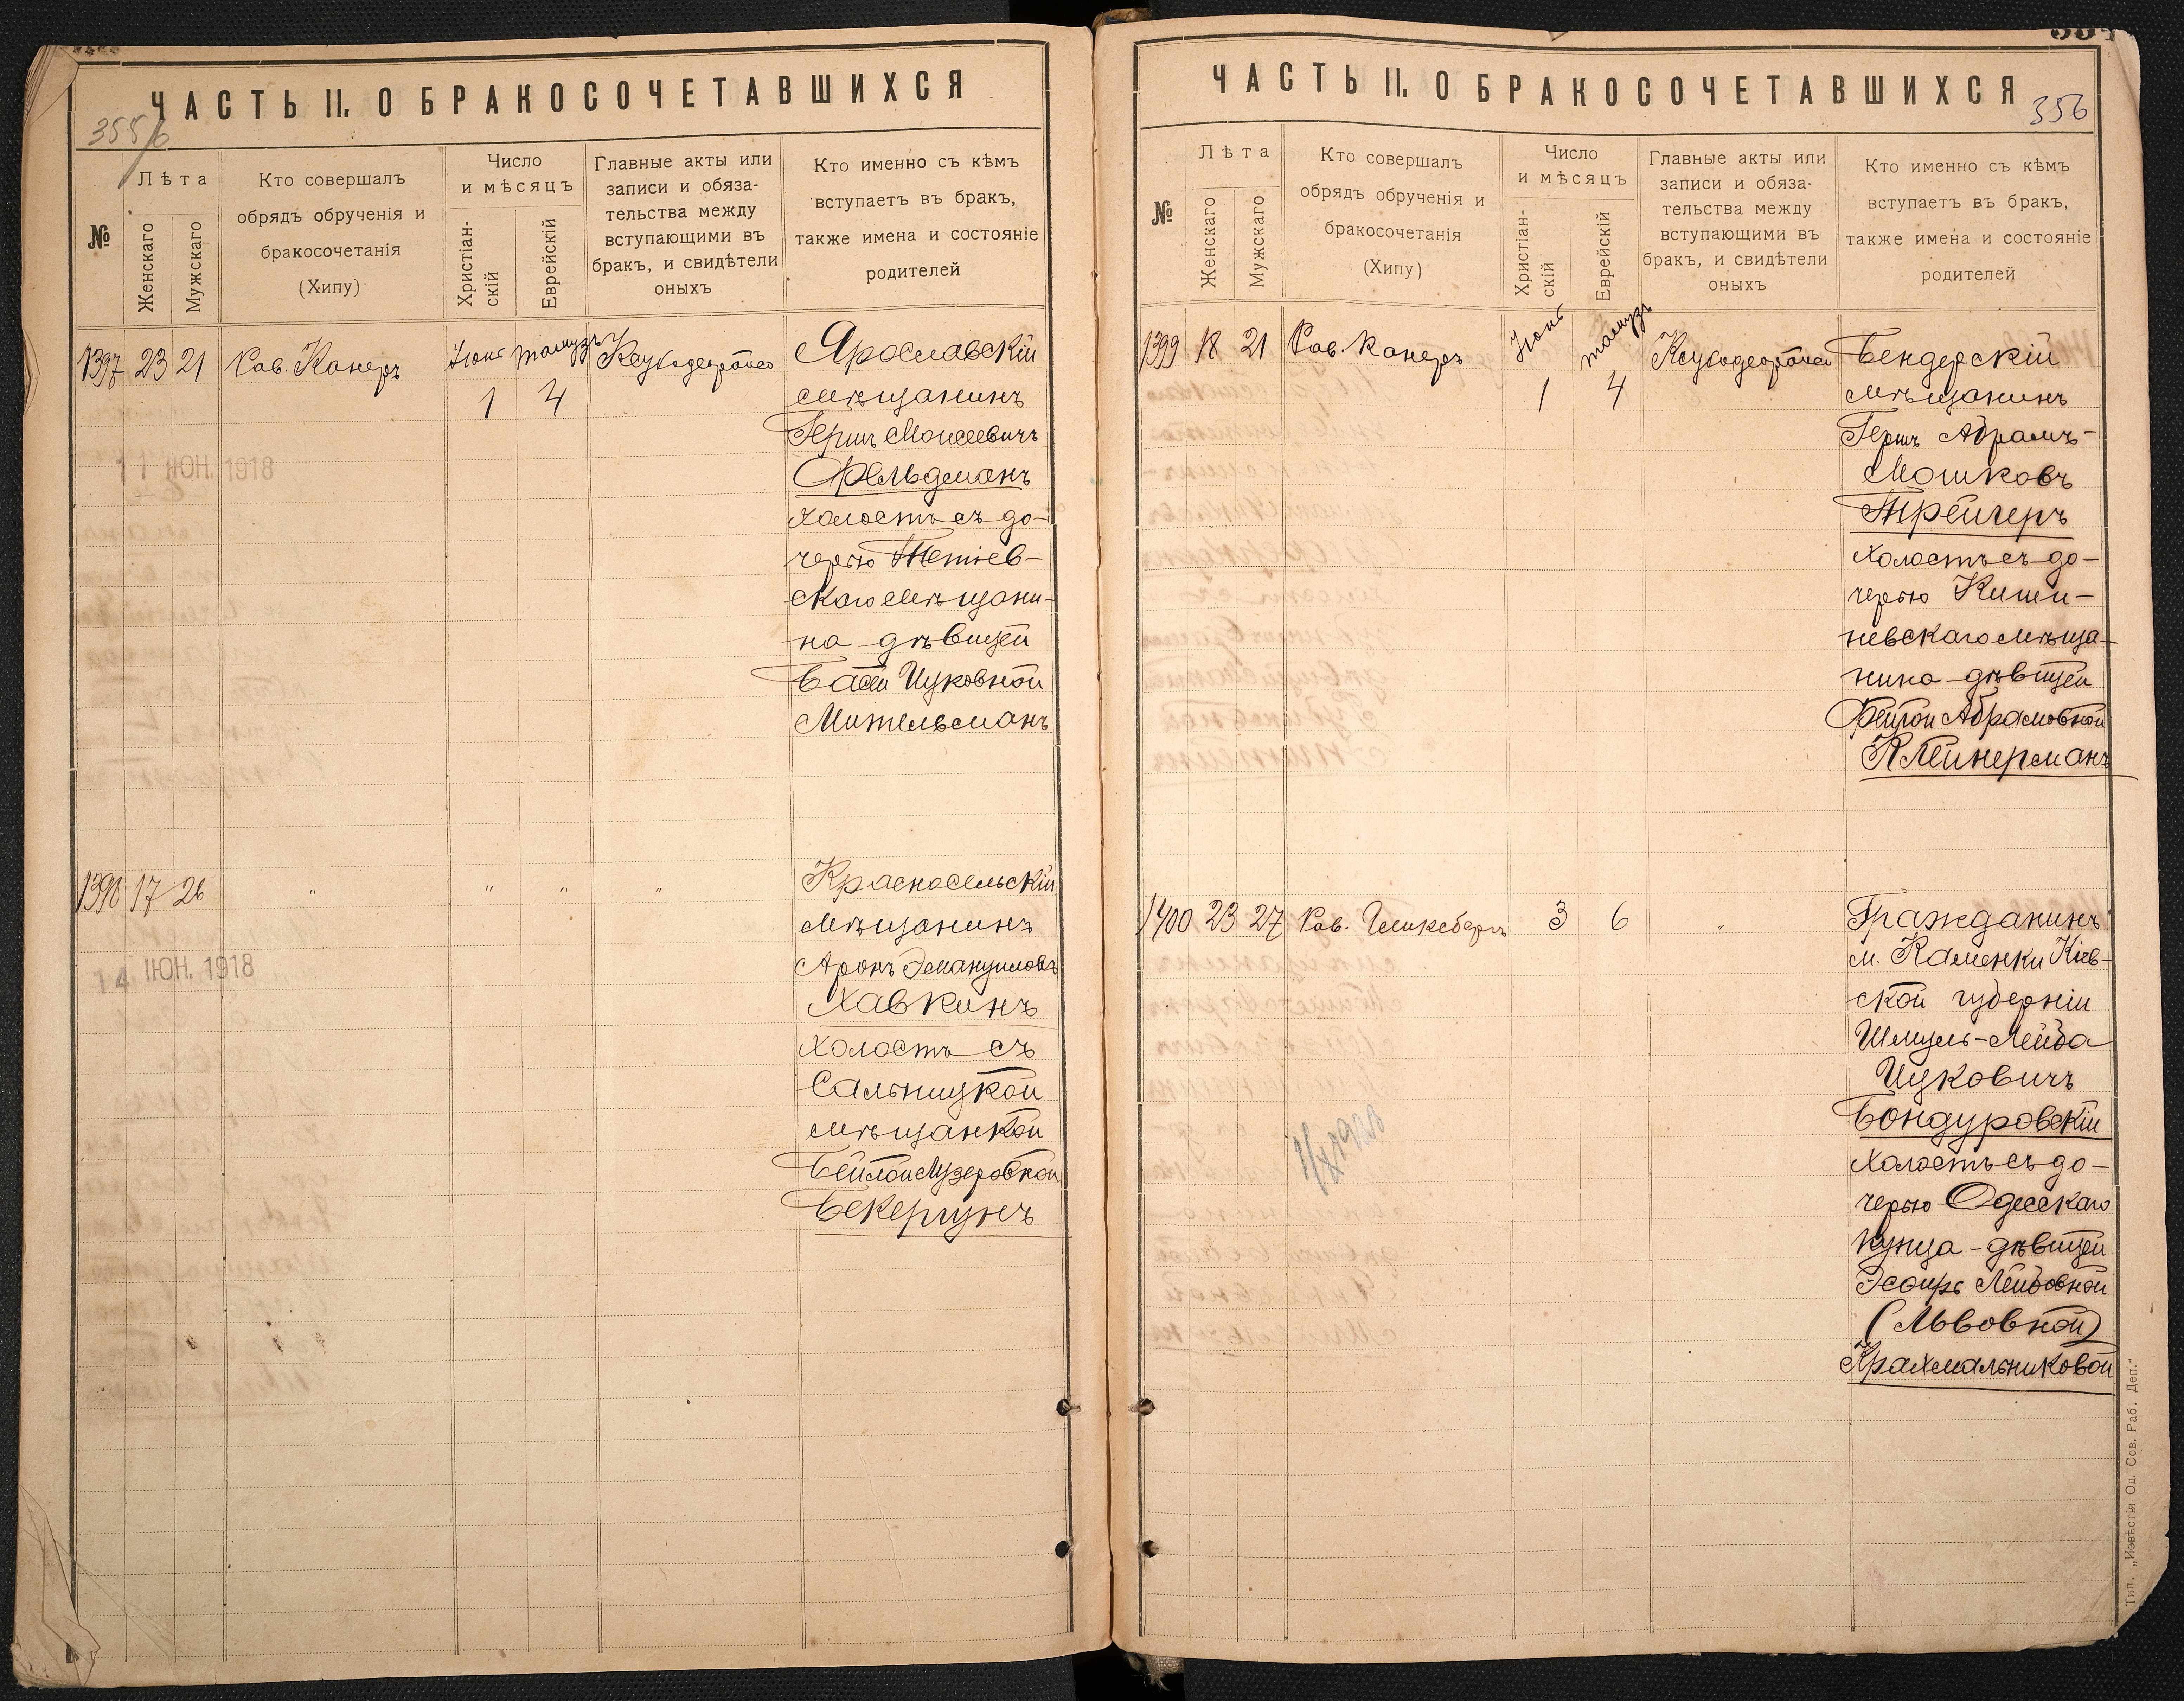 ЧАСТЬ II. О БРАКОСОЧЕТАВШИХСЯ
355/б
№
Лѣта
Женскаго
Мужскаго
Кто совершалъ
обрядъ обрученія и
бракосочетанія
(Хипу)
Число
и мѣсяцъ
Христіан-
скій
Еврейскій
Главные акты или
записи и обяза-
тельства между
вступающими въ
бракъ, и свидѣтели
оныхъ
Кто именно съ кѣмъ
вступаетъ въ бракъ,
также имена и состояніе
родителей
1397 23 21 Рав. Канеръ Іюнь тамузъ
1 4
Ярославскій
мѣщанинъ
Гершъ Моисеевичъ
Фельдманъ
холостъ съ до-
черью Тетіев-
скаго мѣщани-
на дѣвицей
Басей Ицковной
Мительманъ
11 ІЮН. 1918
1398 17 26 " " " "
Красносельскій
мѣщанинъ
Аронъ Эмануиловъ
Хавкинъ
холостъ съ
Сальницкой
мѣщанкой
Бейлой Лузеровной
Бекерцунъ
14 ІЮН. 1918
ЧАСТЬ II. О БРАКОСОЧЕТАВШИХСЯ
356
№
Лѣта
Женскаго
Мужскаго
Кто совершалъ
обрядъ обрученія и
бракосочетанія
(Хипу)
Число
и мѣсяцъ
Христіан-
скій
Еврейскій
Главные акты или
записи и обяза-
тельства между
вступающими въ
бракъ, и свидѣтели
оныхъ
Кто именно съ кѣмъ
вступаетъ въ бракъ,
также имена и состояніе
родителей
1399 18 21 Рав. Канеръ Іюнь тамузъ
1 4
Бендерскій
мѣщанинъ
Гершъ Абрамъ-
Мошковъ
Трейгеръ
холостъ съ до-
черью Киши-
невскаго мѣща-
нина дѣвицей
Фейгой Абрамовной
Клейнерманъ
1400 23 27 Рав. Гликсбергъ 3 6 "
Гражданинъ
м. Каменки Кіев-
ской губерніи
Шмуль-Лейба
Ицковичъ
Бондуровскій
холостъ съ до-
черью Одесскаго
купца - дѣвицей
Эсѳирь Лейбовной
(Львовной)
Крахмальниковой
Тип. „Извѣстія Од. Сов. Раб. Деп.“